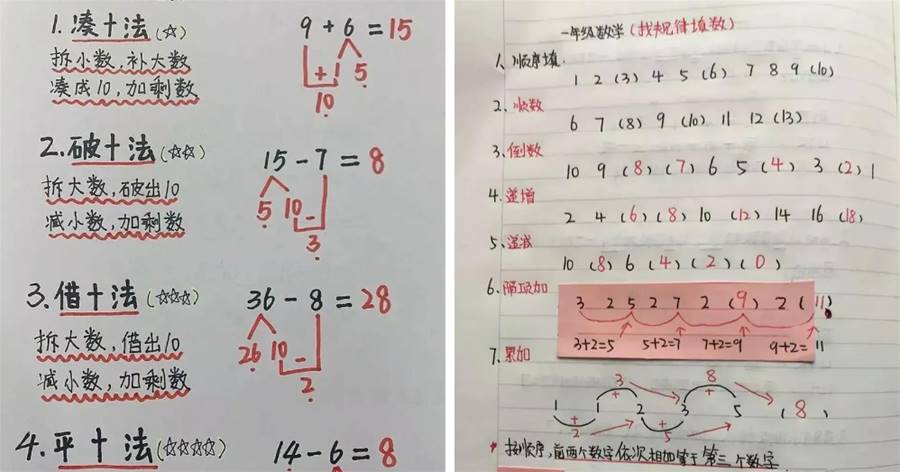 1.凑十法(☆)
拆小数,补大数
凑成10,加剩数
9+6=15
+1 5
10
2.破十法(☆☆)
拆大数,破出10
减小数,加剩数
15-7=8
5 10 -
3
3.借十法(☆☆☆)
拆大数,借出10
减小数,加剩数
36-8=28
26 10 -
2
4.平十法(☆☆☆☆)
14-6=8
一年级数学(找规律填数)
1、顺序填.
1 2 (3) 4 5 (6) 7 8 9 (10)
2、顺数
6 7 (8) 9 (10) 11 12 (13)
3、倒数
10 9 (8) (7) 6 5 (4) 3 (2) 1
4、递增
2 4 (6) (8) 10 (12) 14 16 (18)
5、递减
10 (8) 6 (4) (2) (0)
6、隔项加
3 2 5 2 7 2 (9) 2 (11)
3+2=5 5+2=7 7+2=9 9+2=11
7、累加
3 8
+ +
1 1 2 3 5 (8)
+ +
2 5
*按顺序,前两个数字依次相加等于第三个数字